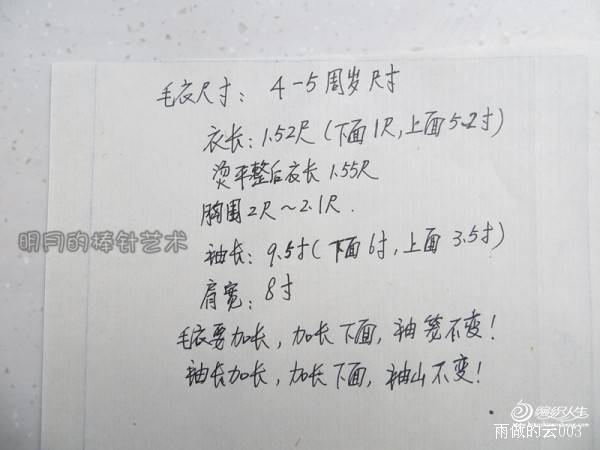 毛衣尺寸：4-5周岁尺寸
衣长：1.52尺（下面1尺，上面5.2寸）
烫平整后衣长1.55尺
胸围2尺～2.1尺.
明月的棒针艺术
袖长：9.5寸（下面6寸，上面3.5寸）
肩宽：8寸
毛衣要加长，加长下面，袖笼不变！
袖长加长，加长下面，袖山不变！
编织人生
雨做的云003